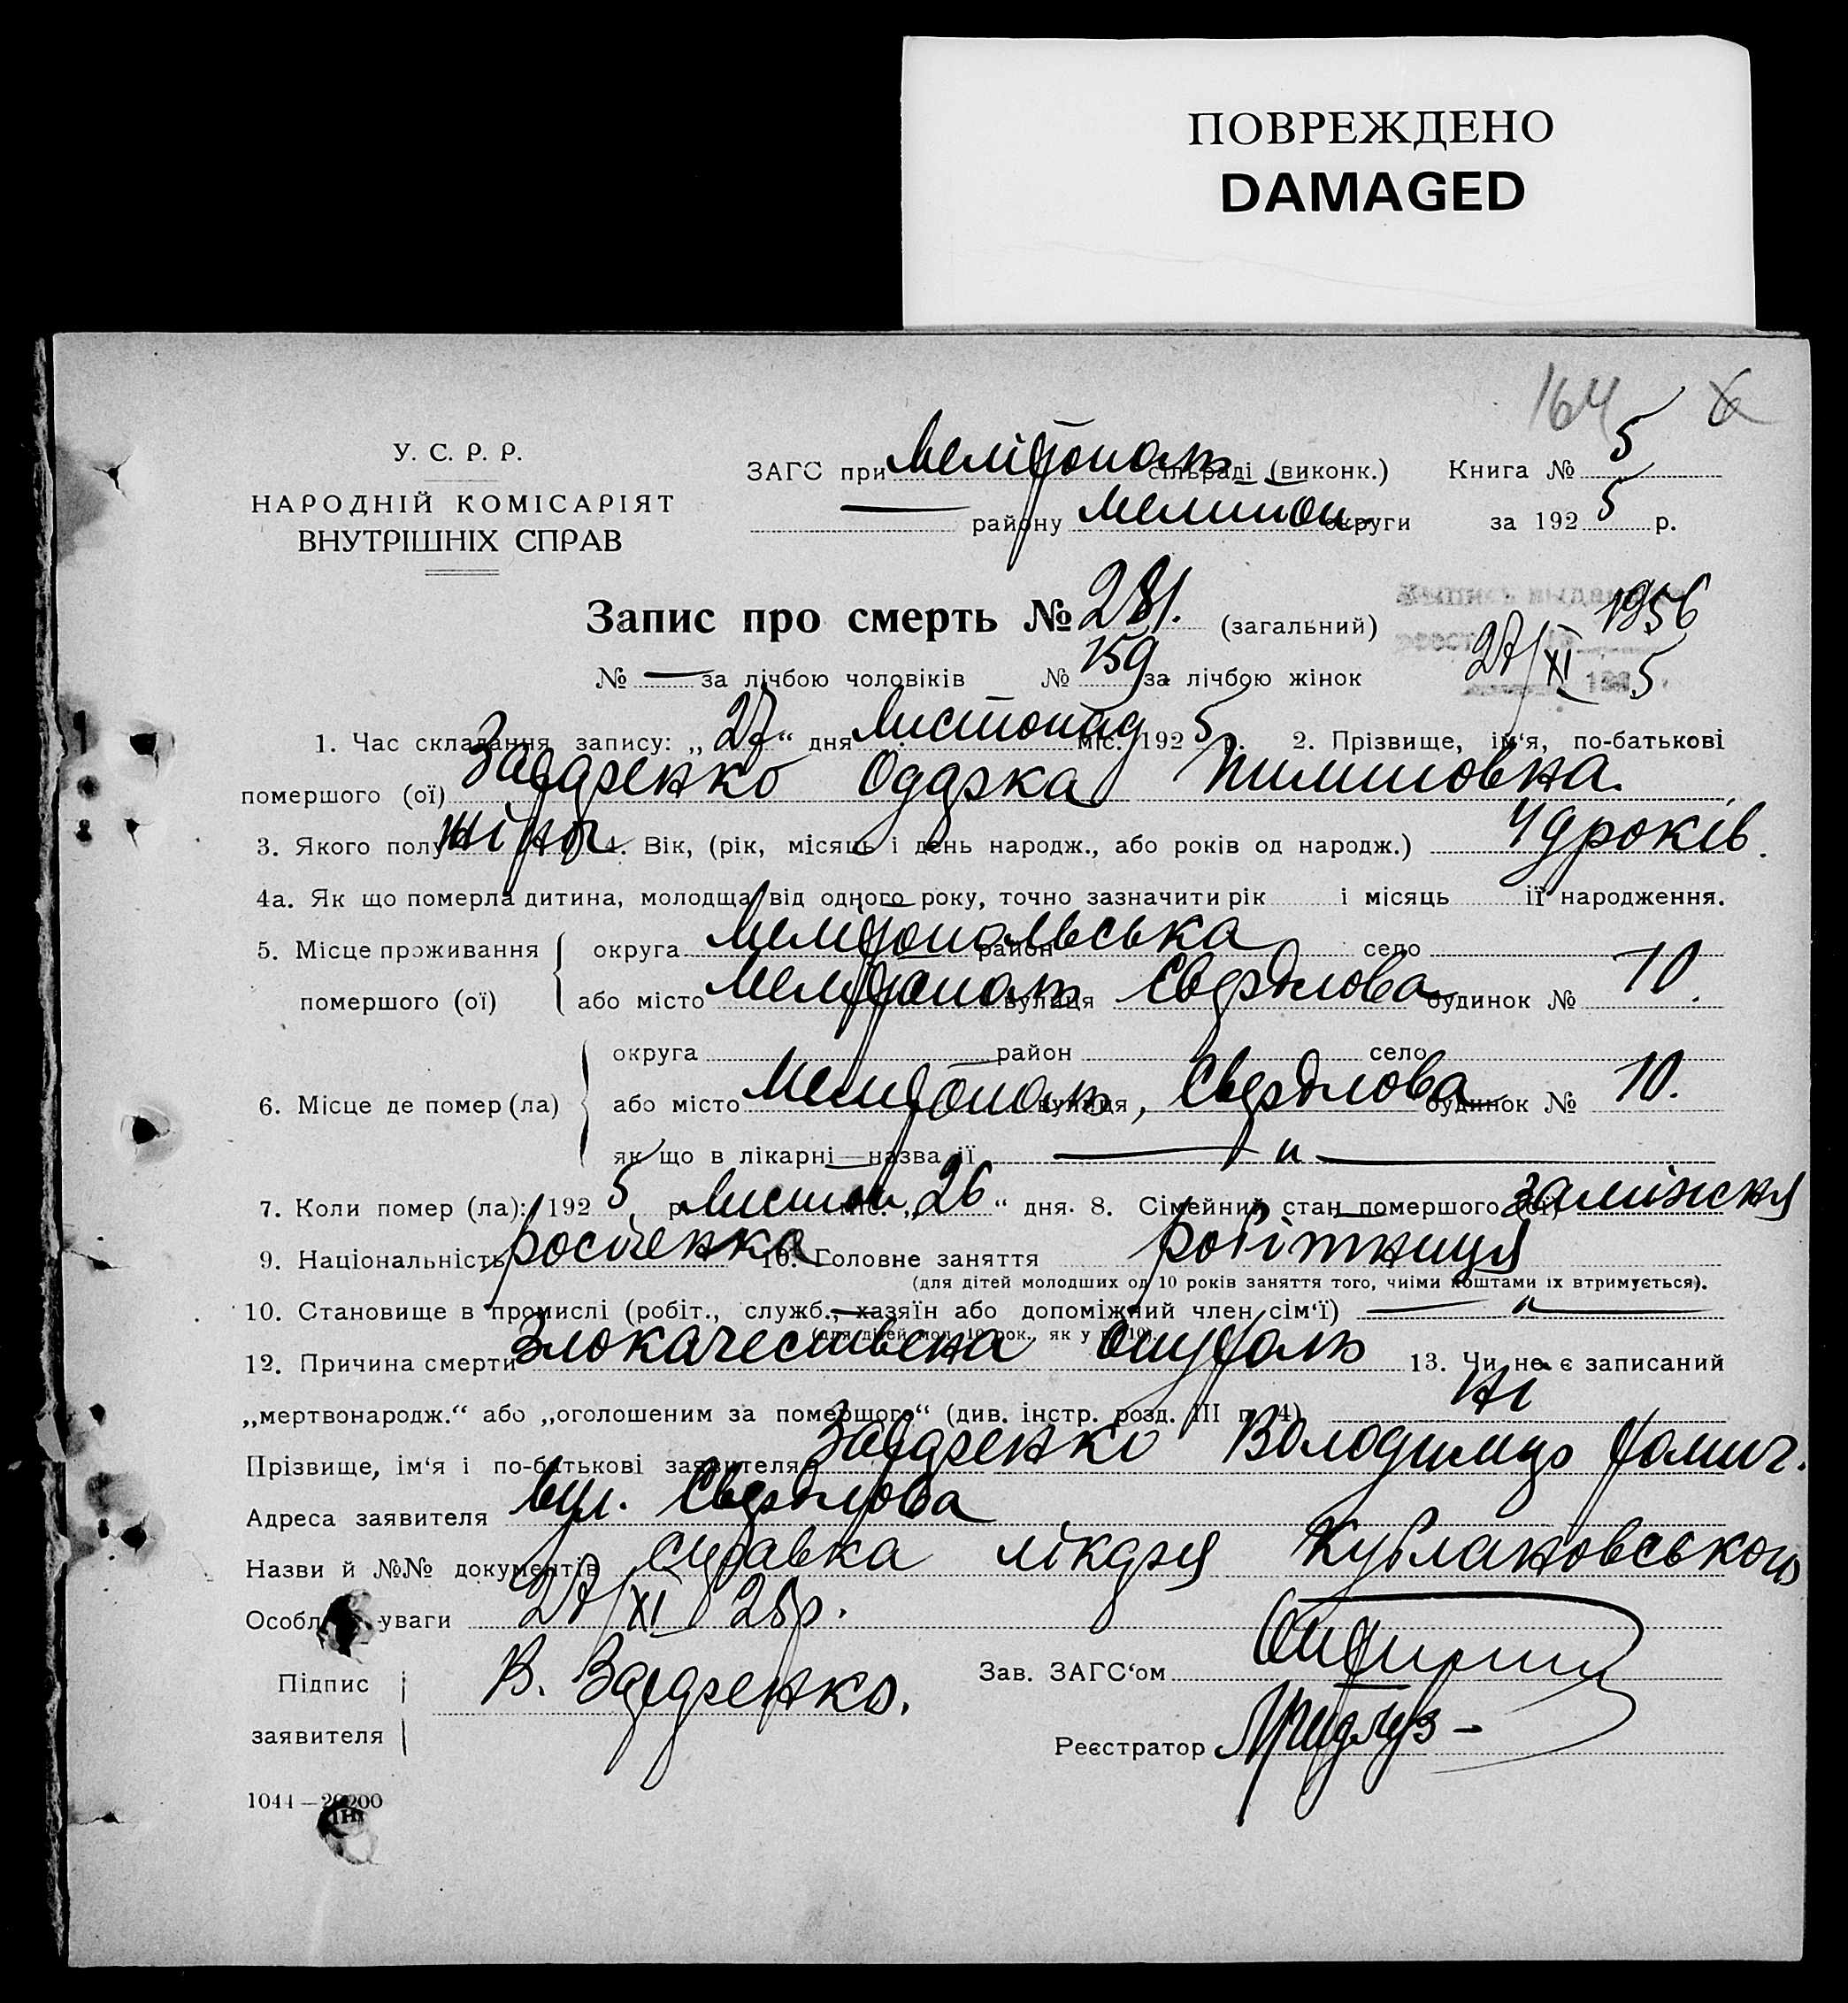 ПОВРЕЖДЕНО
DAMAGED
164
У. С. Р. Р.
НАРОДНІЙ КОМІСАРІЯТ
ВНУТРІШНІХ СПРАВ
ЗАГС при Мелітопол сільраді (виконк.) Книга № 5
— району Мелітоп. округи за 1925 р.
Запис про смерть № 281. (загальний)
1956
№ — за лічбою чоловіків № 159 за лічбою жінок
27/XI 1925
1. Час складання запису: „27“ дня Листопад міс. 1925 р. 2. Прізвище, ім‘я, по-батькові
помершого (ої) Одарка Пилиповна.
3. Якого полу жіноч. 4. Вік, (рік, місяць і день народж., або років од народж.) 49 років.
4а. Як що померла дитина, молодща від одного року, точно зазначити рік і місяць її народження.
5. Місце проживання округа Мелітопольська район село
помершого (ої) або місто Мелітопол вулиця Свердлова будинок № 10.
округа район село
6. Місце де помер (ла) або місто Мелітопол, вулиця Свердлова будинок № 10.
як що в лікарні—назва її — „ —
7. Коли помер (ла): 1925 р. Листоп міс. „26“ дня. 8. Сімейний стан помершого (ої) заміжня
9. Національність росіенка 10. Головне заняття робітниця
(для дітей молодших од 10 років заняття того, чиїми коштами їх втримується).
10. Становище в промислі (робіт., служб., хазяїн або допоміжний член сім‘ї) — „ —
(для дітей мол. 10 рок., як у п. 10).
12. Причина смерти Злокачествена опухоль 13. Чи не є записаний
„мертвонародж.“ або „оголошеним за помершого“ (див. інстр. розд. III п. 4) Ні
Прізвище, ім‘я і по-батькові заявителя Володимир
Адреса заявителя вул. Свердлова
Назви й №№ документів справка лікаря
Особл уваги 27/XI 25р.
Підпис
заявителя
В.
Зав. ЗАГС‘ом
Реєстратор
1044—20200